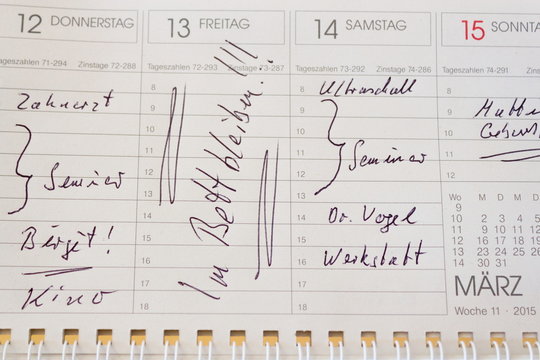 12 DONNERSTAG
Tageszahlen 71-294 Zinstage 72-288
Zahnarzt
Seminar
Birgit!
Kino
13 FREITAG
Tageszahlen 72-293 Zinstage 73-287
8
9
10
11
12
13
14
15
16
17
18
Im Bett bleiben!!!
14 SAMSTAG
Tageszahlen 73-292 Zinstage 74-286
8
9
10
11
12
13
14
15
16
17
18
Ultraschall
Seminar
Dr. Vogel
Werkstatt
15 SONNTA
Tageszahlen 74-291 Zinstage 7
8
9
10
11
12
Mutte
Geburt
Wo M D M
9
10 2 3 4 5
11 9 10 11 12
12 16 17 18 19
13 23 24 25 26
14 30 31
MÄRZ
Woche 11 · 2015